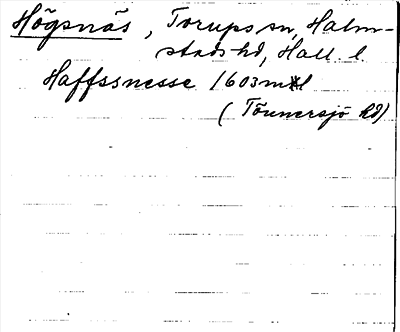 Högsnäs, Torups sn, Halm-
stads hd, Hall. l.
Haffssnesse 1603 mtl
(Tönnersjö hd)